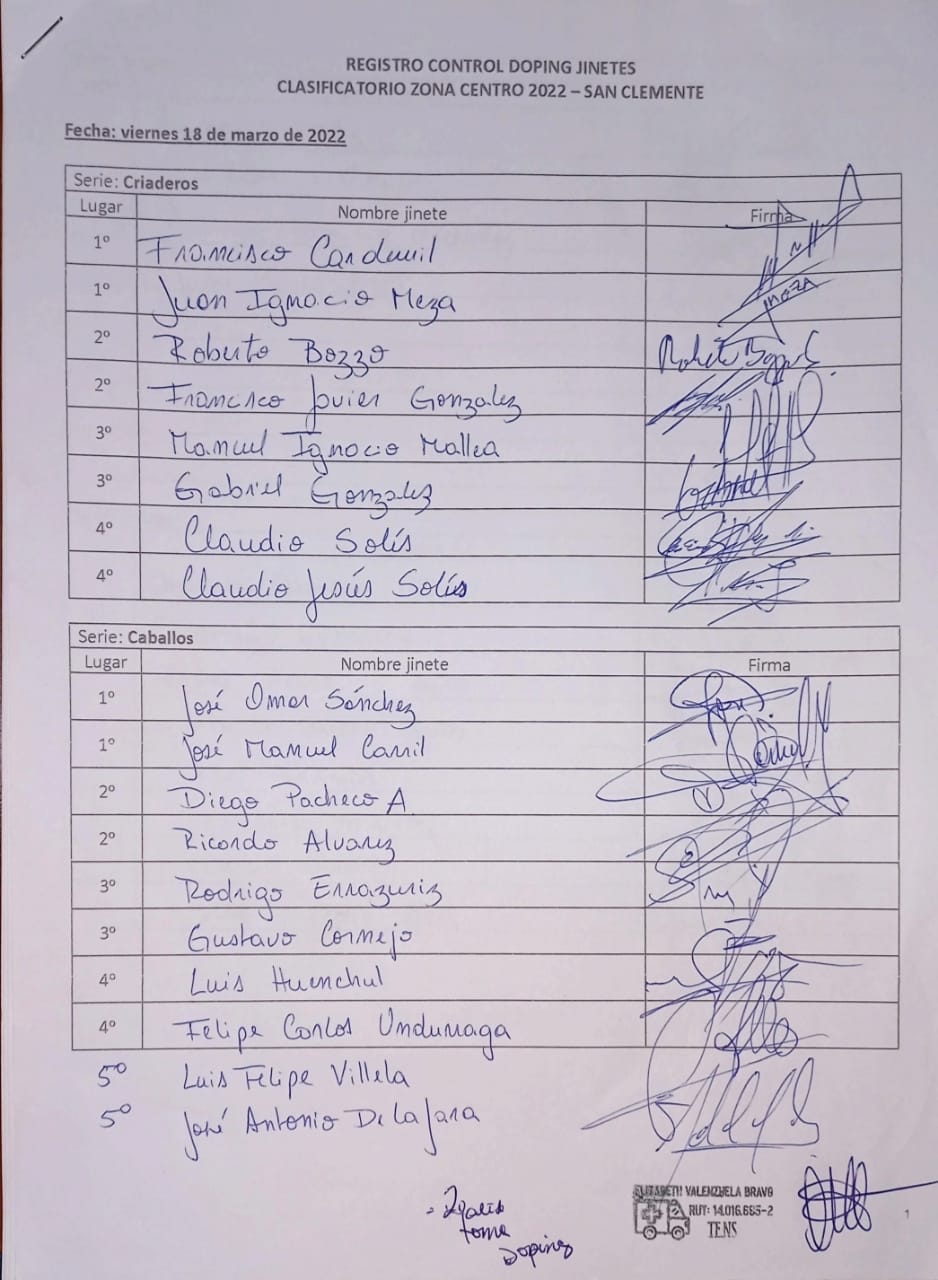 REGISTRO CONTROL DOPING JINETES
CLASIFICATORIO ZONA CENTRO 2022 – SAN CLEMENTE
Fecha: viernes 18 de marzo de 2022
Serie: Criaderos
Lugar Nombre jinete Firma
1º Francisco Cardemil
1º Juan Ignacio Meza
2º Roberto Bozzo
2º Francisco Javier Gonzalez
3º Manuel Ignacio Mallea
3º Gabriel Gonzalez
4º Claudio Solís
4º Claudio Jesús Solís
Serie: Caballos
Lugar Nombre jinete Firma
1º José Omar Sánchez
1º José Manuel Carril
2º Diego Pacheco A
2º Ricardo Alvarez
3º Rodrigo Errazuriz
3º Gustavo Cornejo
4º Luis Huenchul
4º Felipe Carlos Undurraga
5º Luis Felipe Villela
5º José Antonio De la Jara
toma
Doping
ELIZABETH VALENZUELA BRAVO
RUT: 14.016.665-2
TENS
1